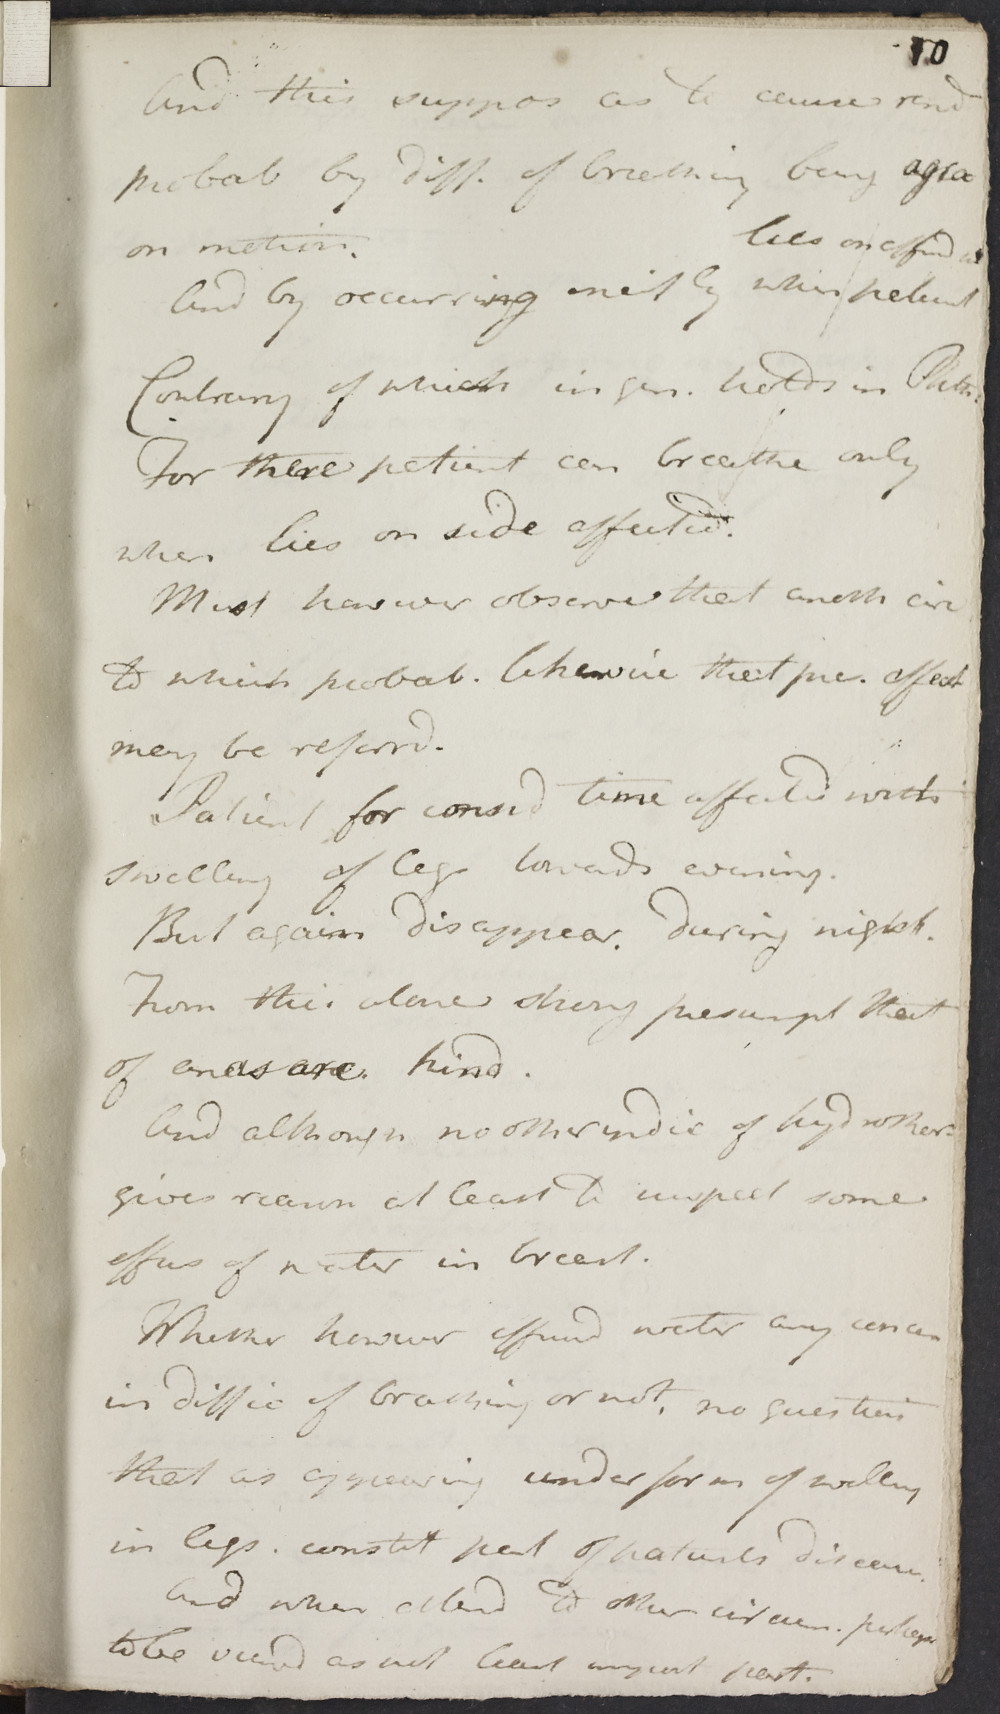 10
And this suppos as to cause rend
probab by diff. of breathing being agra
on motion.
lies on affected
And by occurring only when patient
Contrary of which in gen. holds in Phth.
For there patient can breathe only
when lies on side affected.
Must however observe that anoth circ
to which probab. likewise that pre. affect
may be referrd.
Patient for consid time affected with
swelling of legs towards evening.
But again disappear. during night.
From this alone strong presumpt that
of anasarc. kind.
And although no other indic of hydrothor
gives reason at least to suspect some
effus of water in breast.
Whether however effusd water any concern
in diffic of breathing or not, no question
that as appearing under form of swelling
in legs. constit part of patients disease.
And when attend to other circum. perhaps
to be viewd as not least import part.